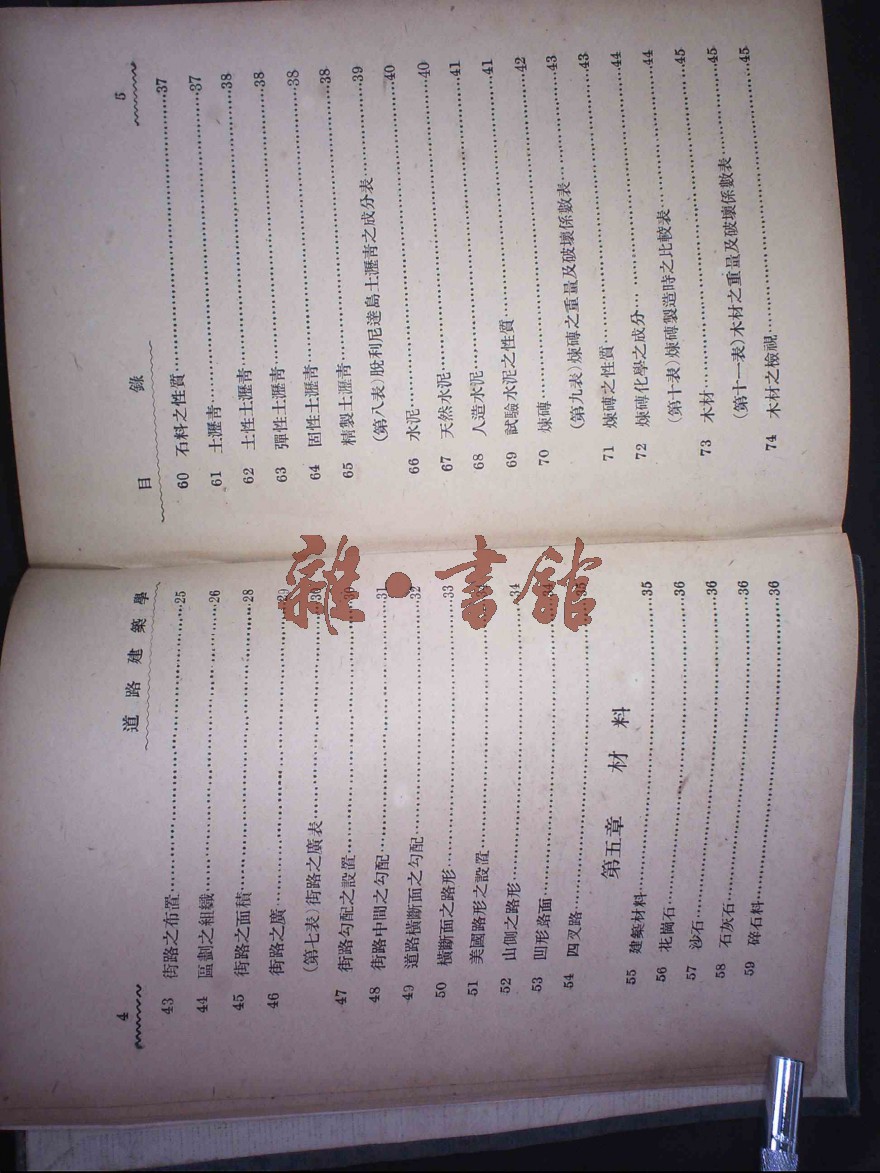 4 道路建築學
43 街路之布置 25
44 區劃之組織 26
45 街路之面積 28
46 街路之廣 29
(第七表)街路之廣表 30
47 街路勾配之設置 30
48 街路中間之勾配 31
49 道路橫斷面之勾配 32
50 橫斷面之路形 33
51 美國路形之設置
52 山側之路形 34
53 凹形路面
54 四叉路
第五章 材料
55 建築材料 35
56 花崗石 36
57 沙石 36
58 石灰石 36
59 碎石料 36
目錄 5
60 石料之性質 37
61 土瀝青 37
62 土性土瀝青 38
63 彈性土瀝青 38
64 固性土瀝青 38
65 精製土瀝青 38
(第八表)脫利尼達島土瀝青之成分表 39
66 水泥 40
67 天然水泥 40
68 人造水泥 41
69 試驗水泥之性質 41
70 煉磚 42
(第九表)煉磚之重量及破壞係數表 43
71 煉磚之性質 43
72 煉磚化學之成分 44
(第十表)煉磚製造時之比較表 44
73 木材 45
(第十一表)木材之重量及破壞係數表 45
74 木材之檢視 45
雜·書館